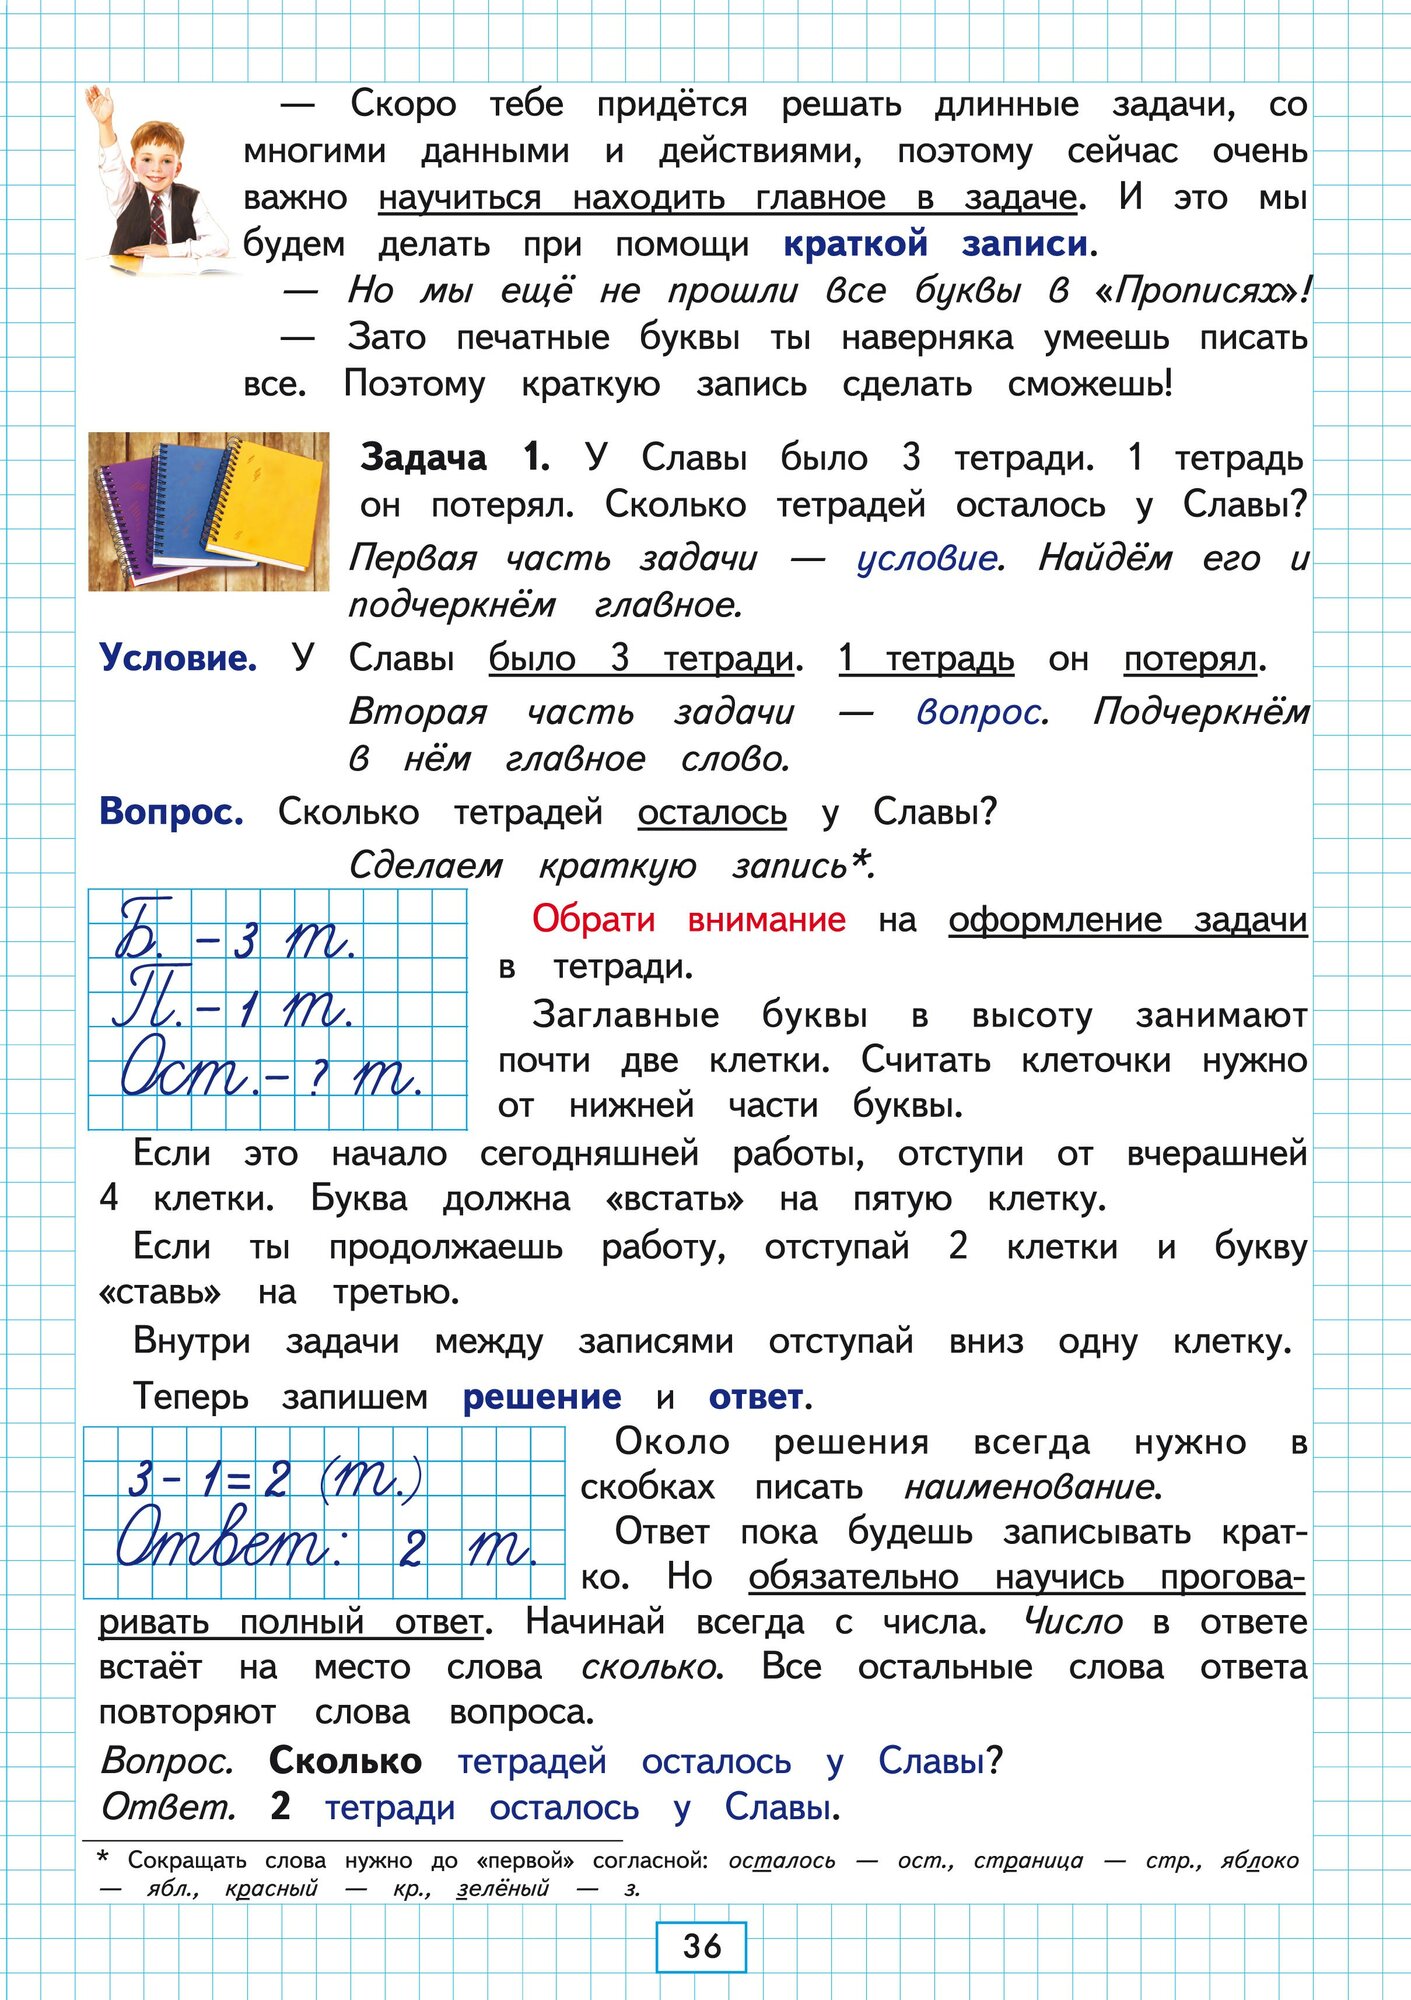 — Скоро тебе придётся решать длинные задачи, со
многими данными и действиями, поэтому сейчас очень
важно научиться находить главное в задаче. И это мы
будем делать при помощи краткой записи.
— Но мы ещё не прошли все буквы в «Прописях»!
— Зато печатные буквы ты наверняка умеешь писать
все. Поэтому краткую запись сделать сможешь!
Задача 1. У Славы было 3 тетради. 1 тетрадь
он потерял. Сколько тетрадей осталось у Славы?
Первая часть задачи — условие. Найдём его и
подчеркнём главное.
Условие. У Славы было 3 тетради. 1 тетрадь он потерял.
Вторая часть задачи — вопрос. Подчеркнём
в нём главное слово.
Вопрос. Сколько тетрадей осталось у Славы?
Сделаем краткую запись*.
Б. – 3 т.
П. – 1 т.
Ост. – ? т.
Обрати внимание на оформление задачи
в тетради.
Заглавные буквы в высоту занимают
почти две клетки. Считать клеточки нужно
от нижней части буквы.
Если это начало сегодняшней работы, отступи от вчерашней
4 клетки. Буква должна «встать» на пятую клетку.
Если ты продолжаешь работу, отступай 2 клетки и букву
«ставь» на третью.
Внутри задачи между записями отступай вниз одну клетку.
Теперь запишем решение и ответ.
3 – 1 = 2 (т.)
Ответ: 2 т.
Около решения всегда нужно в
скобках писать наименование.
Ответ пока будешь записывать крат-
ко. Но обязательно научись прогова-
ривать полный ответ. Начинай всегда с числа. Число в ответе
встаёт на место слова сколько. Все остальные слова ответа
повторяют слова вопроса.
Вопрос. Сколько тетрадей осталось у Славы?
Ответ. 2 тетради осталось у Славы.
* Сокращать слова нужно до «первой» согласной: осталось — ост., страница — стр., яблоко
— ябл., красный — кр., зелёный — з.
36